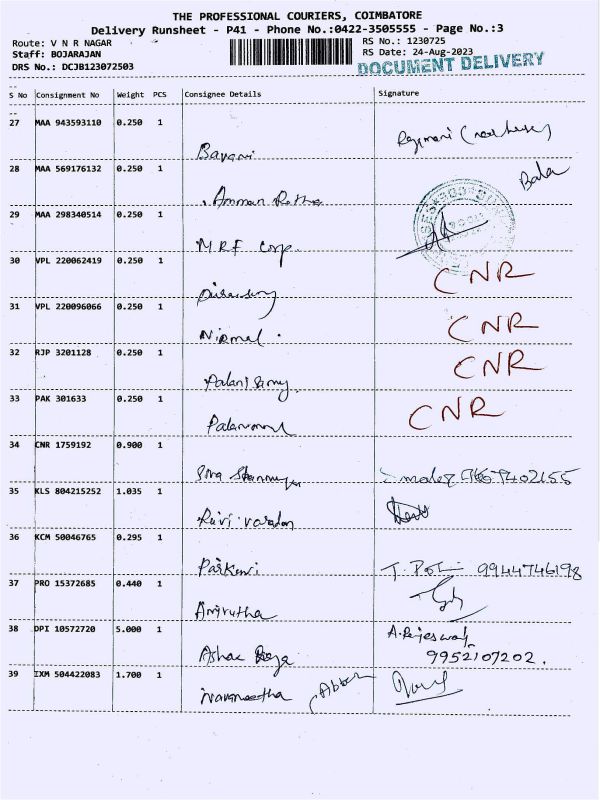 THE PROFESSIONAL COURIERS, COIMBATORE
Delivery Runsheet - P41 - Phone No.:0422-3505555 - Page No.:3
Route: V N R NAGAR RS No.: 1230725
Staff: BOJARAJAN RS Date: 24-Aug-2023
DRS No.: DCJB123072503 DOCUMENT DELIVERY
S No Consignment No Weight PCS Consignee Details Signature
27 MAA 943593110 0.250 1
Bavani
28 MAA 569176132 0.250 1 Bala
Amman
29 MAA 298340514 0.250 1
MRF Corp.
30 VPL 220062419 0.250 1 CNR
31 VPL 220096066 0.250 1 CNR
Nirmal.
32 RJP 3201128 0.250 1 CNR
Palanisamy.
33 PAK 301633 0.250 1 CNR
34 CNR 1759192 0.900 1
Siva
35 KLS 804215252 1.035 1
Ravi varadan
36 KCM 50046765 0.295 1
9944746198
37 PRO 15372685 0.440 1
Amirutha
38 DPI 10572720 5.000 1 A. Rajeswari
Ashok 9952107202.
39 IXM 504422083 1.700 1
Navaneetha